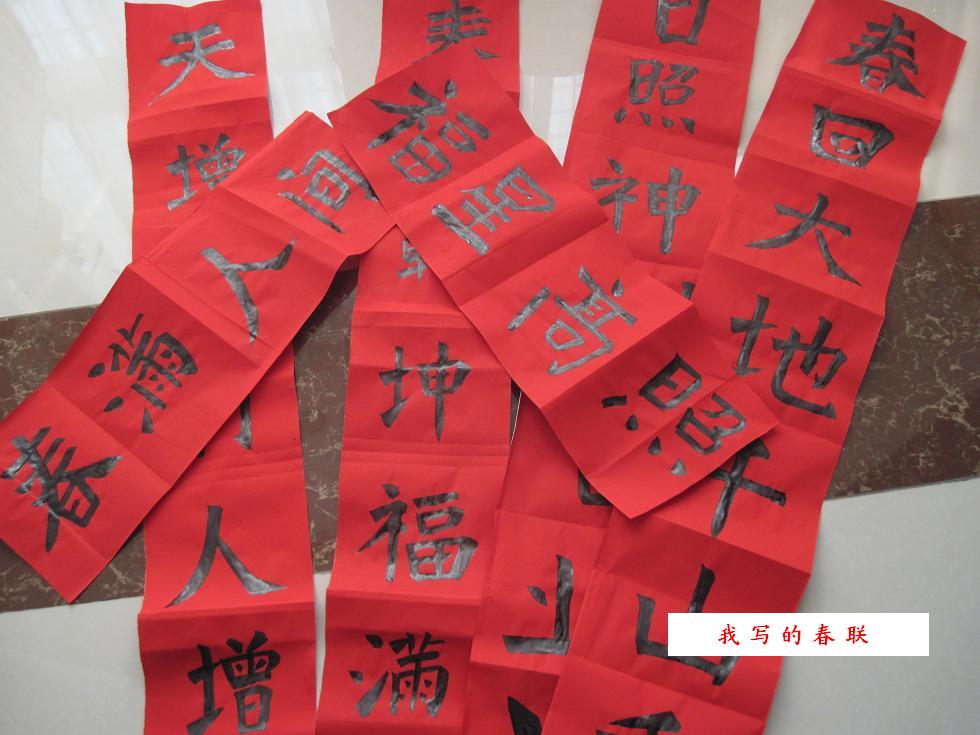 春回大地千山
日照神
坤福满
天增
人增
福星高照
春满人间
我写的春联